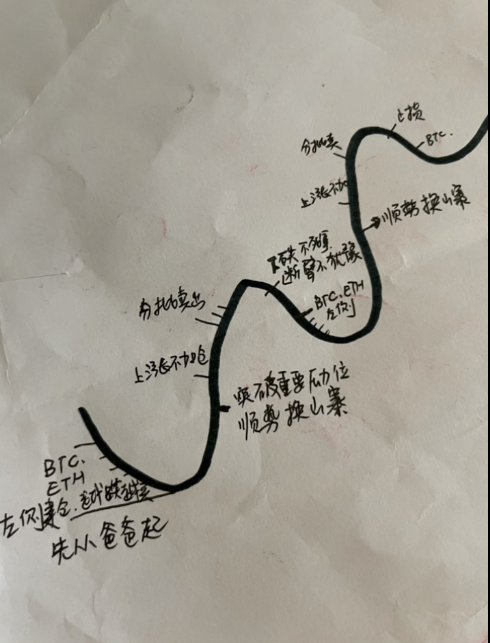 止损
BTC.
分批卖
上涨不加
顺势换山寨
下跌不理,
断臂不犹豫
BTC.ETH
左侧
分批卖出
上涨不加仓
突破重要压力位
顺势换山寨
BTC.
ETH
左侧建仓.越跌越买
先从爸爸起